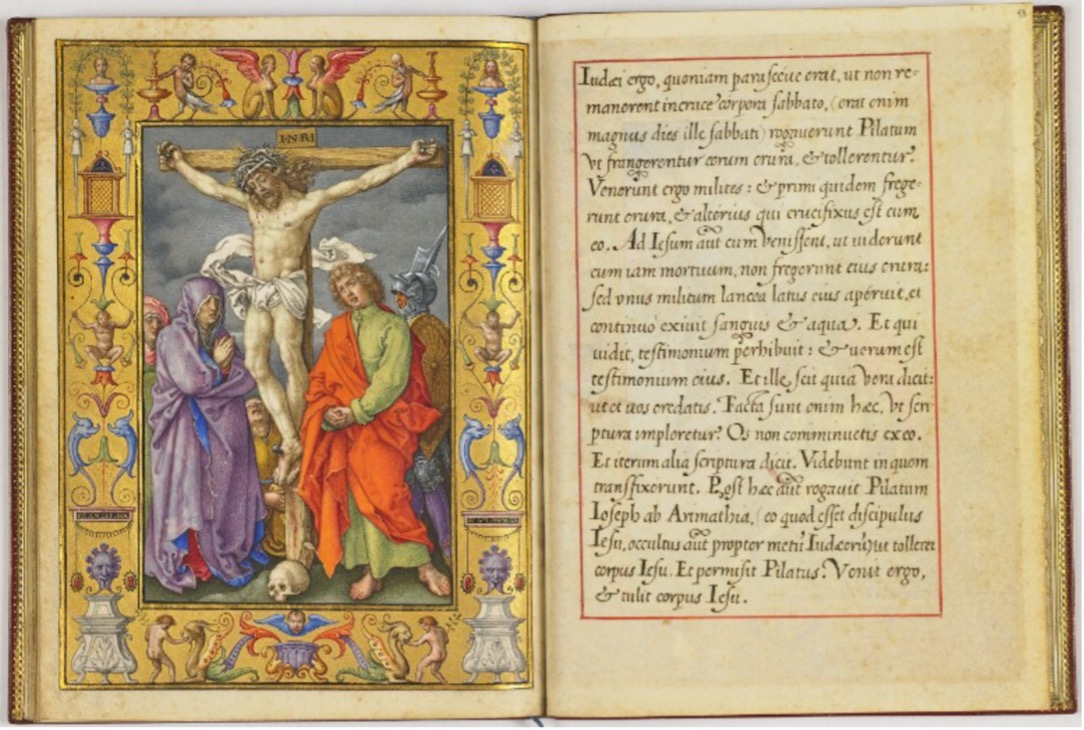 I·N·R·I
Iudæi ergo, quoniam parasceue erat, ut non re-
manerent in cruce corpora sabbato, (erat enim
magnus dies ille sabbati) rogauerunt Pilatum
vt frangerentur eorum crura, & tollerentur.
Venerunt ergo milites: & primi quidem frege-
runt crura, & alterius qui crucifixus est cum
eo. Ad Iesum aūt cum venissent, ut uiderunt
eum iam mortuum, non fregerunt eius crura:
sed vnus militum lancea latus eius aperuit, et
continuo exiuit sanguis & aqua. Et qui
uidit, testimonium perhibuit: & uerum est
testimonium eius. Et ille scit quia vera dicit:
ut et uos credatis. Facta sunt enim hæc, vt scri-
ptura impleretur: Os non comminuetis ex eo.
Et iterum alia scriptura dicit. Videbunt in quem
transfixerunt. Post hæc aūt rogauit Pilatum
Ioseph ab Arimathia, (eo quod esset discipulus
Iesu, occultus aūt propter metū Iudæorū) ut tolleret
corpus Iesu. Et permisit Pilatus. Venit ergo,
& tulit corpus Iesu.